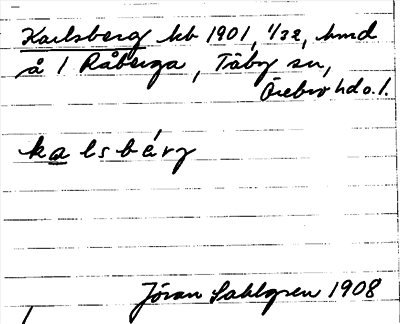 Karlsberg kb 1901, 1/32, hmd
å 1 Råberga, Täby sn,
Örebro hd o. l.
kalsbärg
Jöran Sahlgren 1908